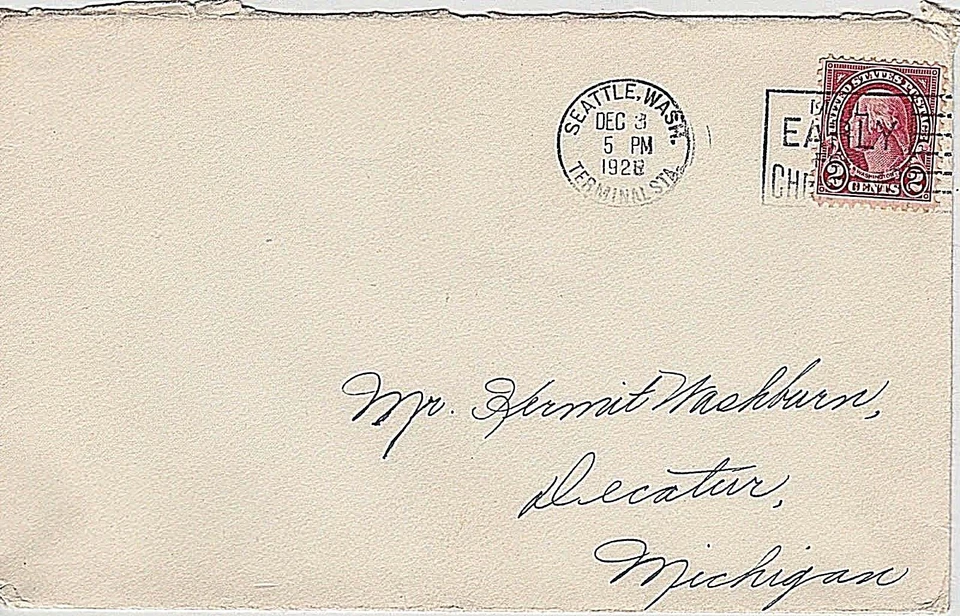 SEATTLE, WASH.
DEC 3
5 PM
TERMINAL STA.
EARLY
UNITED STATES POSTAGE
WASHINGTON
2 CENTS 2
Mr. Hermit Washburn,
Decatur,
Michigan